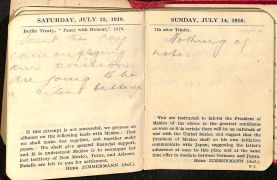 SATURDAY, JULY 13, 1918.
Berlin Treaty, "Peace with Honour," 1878.
Spent the day
camouflaging
our positions.
We are going to be
a silent battery
If this attempt is not successful, we propose an
alliance on the following basis with Mexico: That
we shall make war together, and together make
peace. We shall give general financial support,
and it is understood Mexico is to reconquer her
lost territory of New Mexico, Texas, and Arizona.
Details are left to you for settlement.
HERR ZIMMERMANN (Jnl.).
SUNDAY, JULY 14, 1918.
7th after Trinity.
Nothing of
note
You are instructed to inform the President of
Mexico of the above in the greatest confidence
as soon as it is certain there will be an outbreak of
war with the United States, and suggest that the
President of Mexico shall on his own initiative
communicate with Japan, suggesting the latter's
adherence at once to this plan, and at the same
time offer to mediate between Germany and Japan.
HERR ZIMMERMANN (Jnl.).